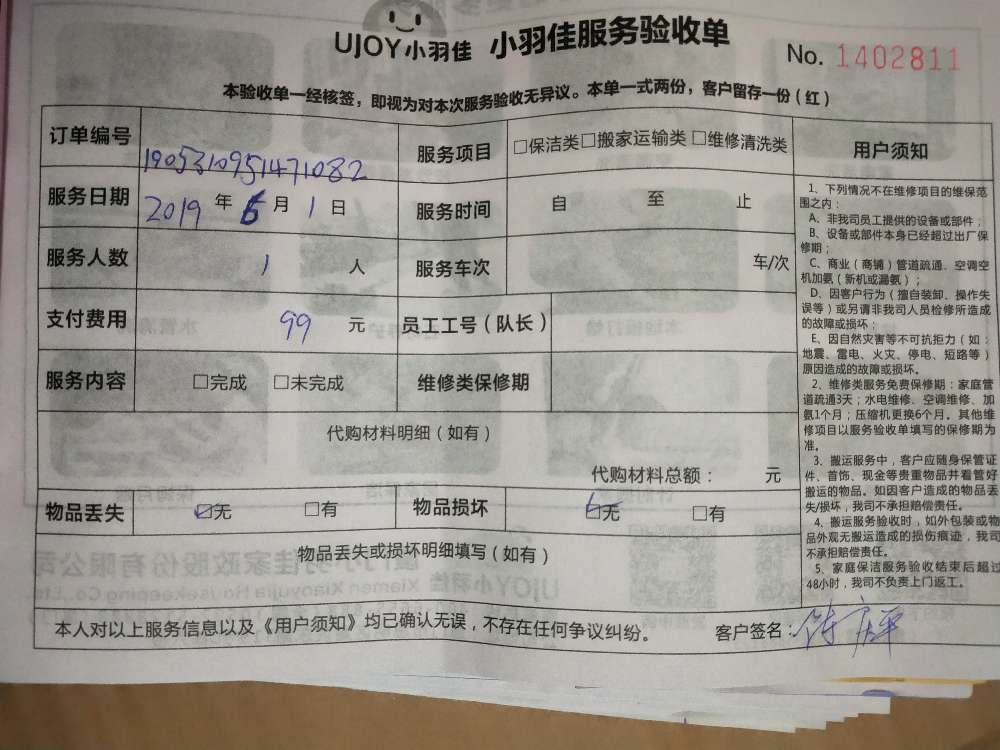 UJOY小羽佳 小羽佳服务验收单
No. 1402811
本验收单一经核签，即视为对本次服务验收无异议。本单一式两份，客户留存一份（红）
订单编号 1905310951471082 服务项目 □保洁类□搬家运输类 □维修清洗类
服务日期 2019 年 6 月 1 日 服务时间 自 至 止
服务人数 1 人 服务车次 车/次
支付费用 99 元 员工工号（队长）
服务内容 □完成 □未完成 维修类保修期
代购材料明细（如有）
代购材料总额： 元
物品丢失 ☑无 □有 物品损坏 ☑无 □有
物品丢失或损坏明细填写（如有）
本人对以上服务信息以及《用户须知》均已确认无误，不存在任何争议纠纷。 客户签名：
用户须知
1、下列情况不在维修项目的维保范
围之内：
A、非我司员工提供的设备或部件；
B、设备或部件本身已经超过出厂保
修期；
C、商业（商铺）管道疏通、空调空
机加氨（新机或漏氨）；
D、因客户行为（擅自装卸、操作失
误等）或另请非我司人员检修所造成
的故障或损坏；
E、因自然灾害等不可抗拒力（如：
地震、雷电、火灾、停电、短路等）
原因造成的故障或损坏。
2、维修类服务免费保修期：家庭管
道疏通3天；水电维修、空调维修、加
氨1个月；压缩机更换6个月。其他维
修项目以服务验收单填写的保修期为
准。
3、搬运服务中，客户应随身保管证
件、首饰、现金等贵重物品并看管好
搬运的物品。如因客户造成的物品丢
失/损坏，我司不承担赔偿责任。
4、搬运服务验收时，如外包装或物
品外观无搬运造成的损伤痕迹，我司
不承担赔偿责任。
5、家庭保洁服务验收结束后超过
48小时，我司不负责上门返工。